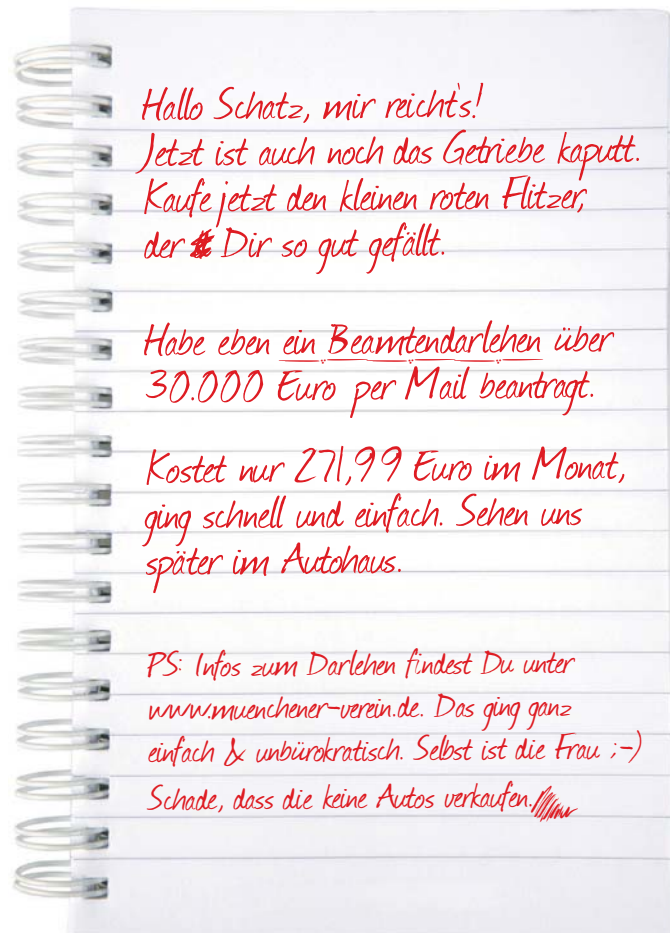 Hallo Schatz, mir reicht's!
Jetzt ist auch noch das Getriebe kaputt.
Kaufe jetzt den kleinen roten Flitzer,
der Dir so gut gefällt.
Habe eben ein Beamtendarlehen über
30.000 Euro per Mail beantragt.
Kostet nur 271,99 Euro im Monat,
ging schnell und einfach. Sehen uns
später im Autohaus.
PS: Infos zum Darlehen findest Du unter
www.muenchener-verein.de. Das ging ganz
einfach & unbürokratisch. Selbst ist die Frau ;-)
Schade, dass die keine Autos verkaufen.